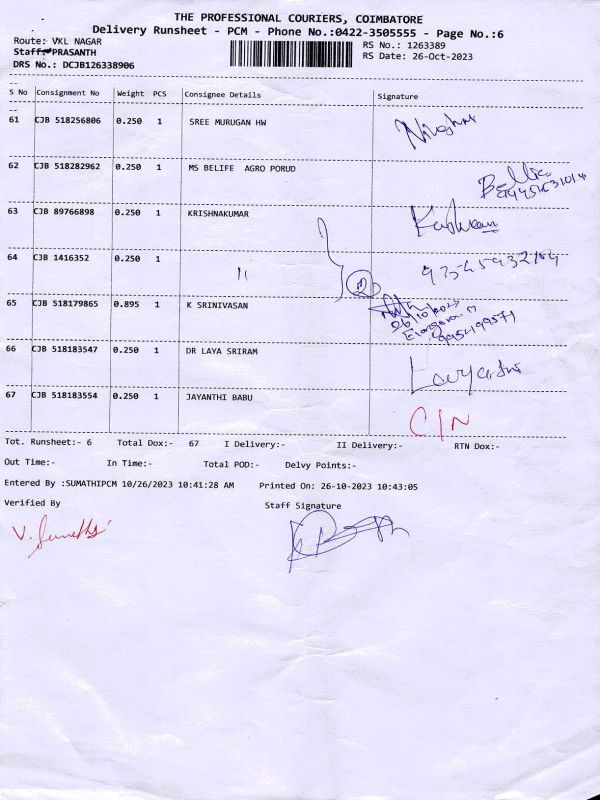 THE PROFESSIONAL COURIERS, COIMBATORE
Delivery Runsheet - PCM - Phone No.:0422-3505555 - Page No.:6
Route: VKL NAGAR
RS No.: 1263389
Staff: PRASANTH
RS Date: 26-Oct-2023
DRS No.: DCJB126338906
S No Consignment No Weight PCS Consignee Details Signature
61 CJB 518256806 0.250 1 SREE MURUGAN HW
62 CJB 518282962 0.250 1 MS BELIFE AGRO PORUD
63 CJB 89766898 0.250 1 KRISHNAKUMAR
64 CJB 1416352 0.250 1 "
65 CJB 518179865 0.895 1 K SRINIVASAN
26/10/2023
66 CJB 518183547 0.250 1 DR LAYA SRIRAM
67 CJB 518183554 0.250 1 JAYANTHI BABU C/N
Tot. Runsheet:- 6 Total Dox:- 67 I Delivery:- II Delivery:- RTN Dox:-
Out Time:- In Time:- Total POD:- Delvy Points:-
Entered By :SUMATHIPCM 10/26/2023 10:41:28 AM Printed On: 26-10-2023 10:43:05
Verified By Staff Signature